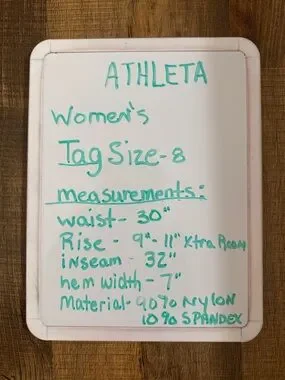 ATHLETA
Women's
Tag Size-8
measurements:
waist- 30"
Rise - 9"-11" Xtra Room
inseam- 32"
hem width- 7"
Material- 90% NYLON
10% SPANDEX